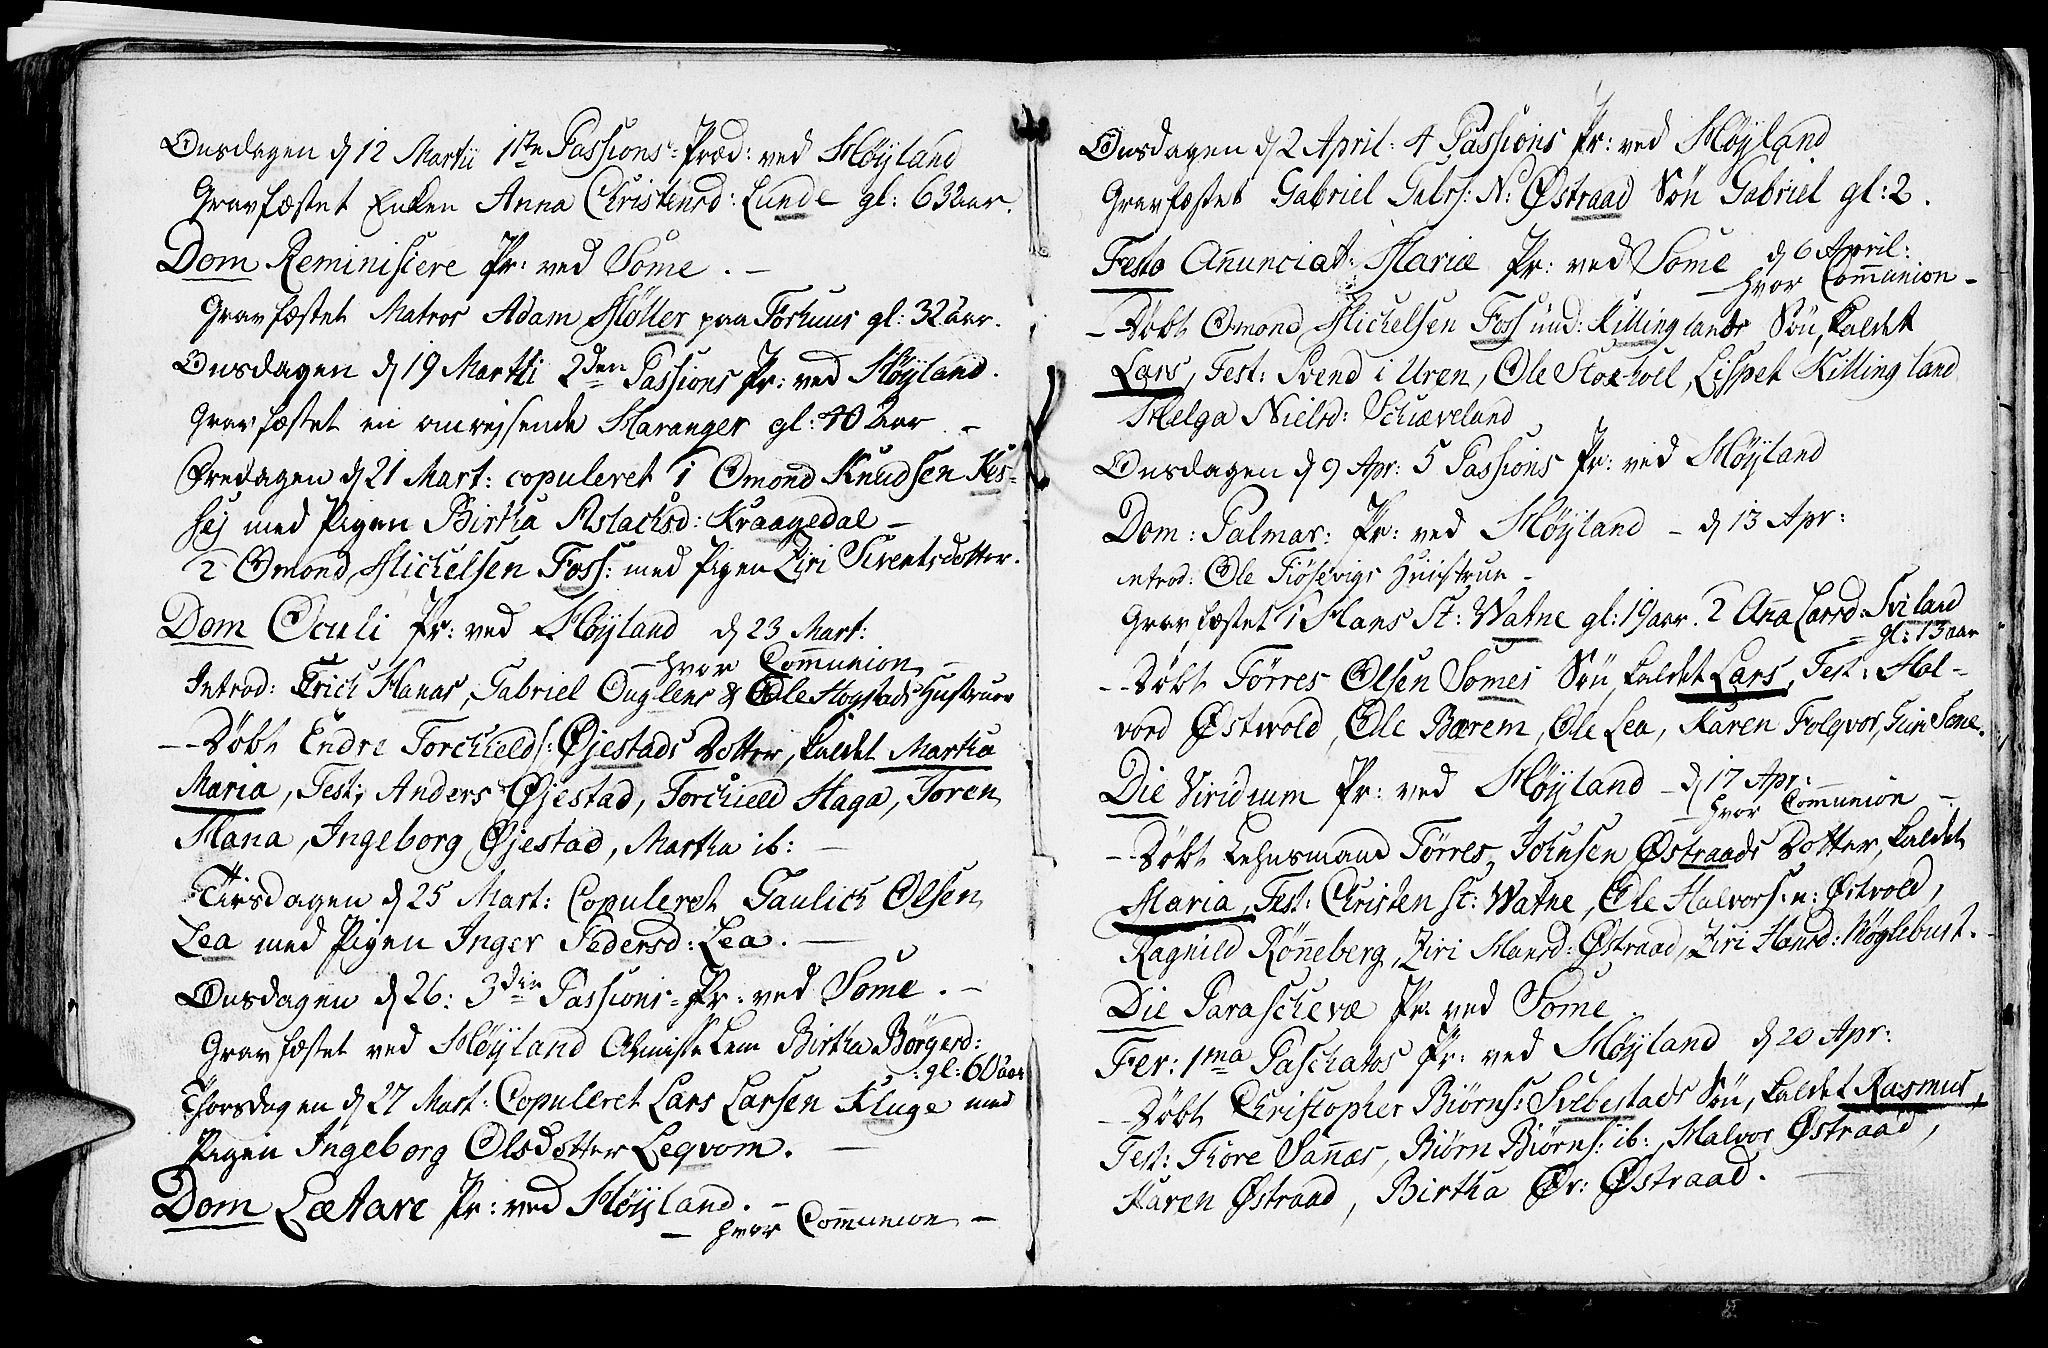 Onsdagen d 12 Martii 1ste Passions-Præd: ved Høyland
Gravfæstet Enken Anna Christensd: Lunde gl: 63 aar.
Dom Reminisiere Pr: ved Some. –
Gravfæstet Matros Adam Møller paa Foshuus gl: 32 aar.
Onsdagen d 19 Martii 2den Passions Pr: ved Høyland.
Gravfæstet en omrejsende Haranger gl: 40 aar –
Fredagen d 21 Mart: copuleret 1 Omond Knudsen Kes-
sej med Pigen Birtha Aslachsd: Kraagedal –
2 Omond Michelsen Foss: med Pigen Ziri Siventsdotter.
Dom Oculi Pr: ved Høyland d 23 Mart:
– hvor Communion –
Introd: Erich Hanas, Gabriel Ouglens & Ole Hogstads Hustruer
-- Døbt Endre Torchields: Øjestads Dotter, kaldet Martha
Maria, Test: Anders Øjestad, Torchield Haga, Toren
Hana, Ingeborg Øjestad, Martha ib: –
Tirsdagen d 25 Mart: Copuleret Gaulich Olsen
Lea med Pigen Inger Pedersd: Lea. –
Onsdagen d 26: 3die Passions-Pr: ved Some. –
Gravfæstet ved Høyland Almisse Lem Birtha Børgersd:
: gl: 60 aar
Thorsdagen d 27 Mart: Copuleret Lars Larsen Kluge med
Pigen Ingeborg Olsdotter Leqvom. –
Dom Lætare Pr: ved Høyland. –
– hvor Communion –
Onsdagen d 2 April: 4 Passions Pr: ved Høyland
Gravfæstet Gabriel Gabrs: N: Østraad Søn Gabriel gl: 2.
Festo Anunciat: Mariæ Pr: ved Some d 6 April:
– hvor Communion –
- Døbt Omond Michelsen Foss und: Killinglands Søn, kaldet
Lars, Test: Svend i Uren, Ole Stocholl, Lispet Killingland
Helga Nielsd: Schiæveland
Onsdagen d 9 Apr: 5 Passions Pr: ved Høyland
Dom: Palmar: Pr: ved Høyland – d 13 Apr:
introd: Ole Fiøsevigs Huustrue –
Gravfæstet 1 Hans St: Watne gl: 19 aar. 2 Ana Larsd: Sviland
gl: 13 aar
-- Døbt Tørres Olsen Somes Søn, kaldet Lars, Test: Hal-
vord Østwold, Ole Bærem, Ole Lea, Karen Folqvor, Guri Some.
Die Viridium Pr: ved Høyland – d 17 Apr:
– hvor Communion –
-- Døbt Lehnsmand Tørres Johnsen Østraads Dotter, kaldet
Maria, Test: Christen St: Watne, Ole Halvors: n: Østvold,
Ragnild Rønneberg, Ziri Hansd: Østraad, Ziri Hansd: Møglebust.
Die Paraschevæ Pr: ved Some
Fer: 1ma Paschatos Pr: ved Høyland d 20 Apr:
-- Døbt Christopher Biørns: Svebestads Søn, kaldet Rasmus,
Test: Thore Sannæs, Biørn Biørns: ib:, Halvor Østraad,
Karen Østraad, Birtha Ør: Østraad. –